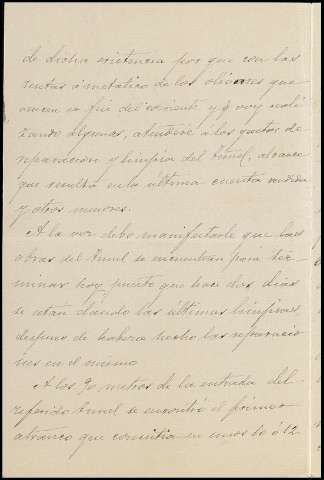 de dicha existencia por que con las
rentas á metálico de los olivares que
vencen en fin del corriente y q voy reali
zando algunas, atenderé á los gastos de
reparación y limpia del tunel, alcance
que resultó en la última cuenta rendida
y otros menores.
A la vez debo manifestarle que las
obras del Tunel se encuentran para ter
minar hoy, puesto que hace dos dias
se están dando las últimas limpias,
despues de haberse hecho las reparacio
nes en el mismo
A los 90 metros de la entrada del
referido Tunel se encontró el primer
atranco que consistia en unos 10 ó 12